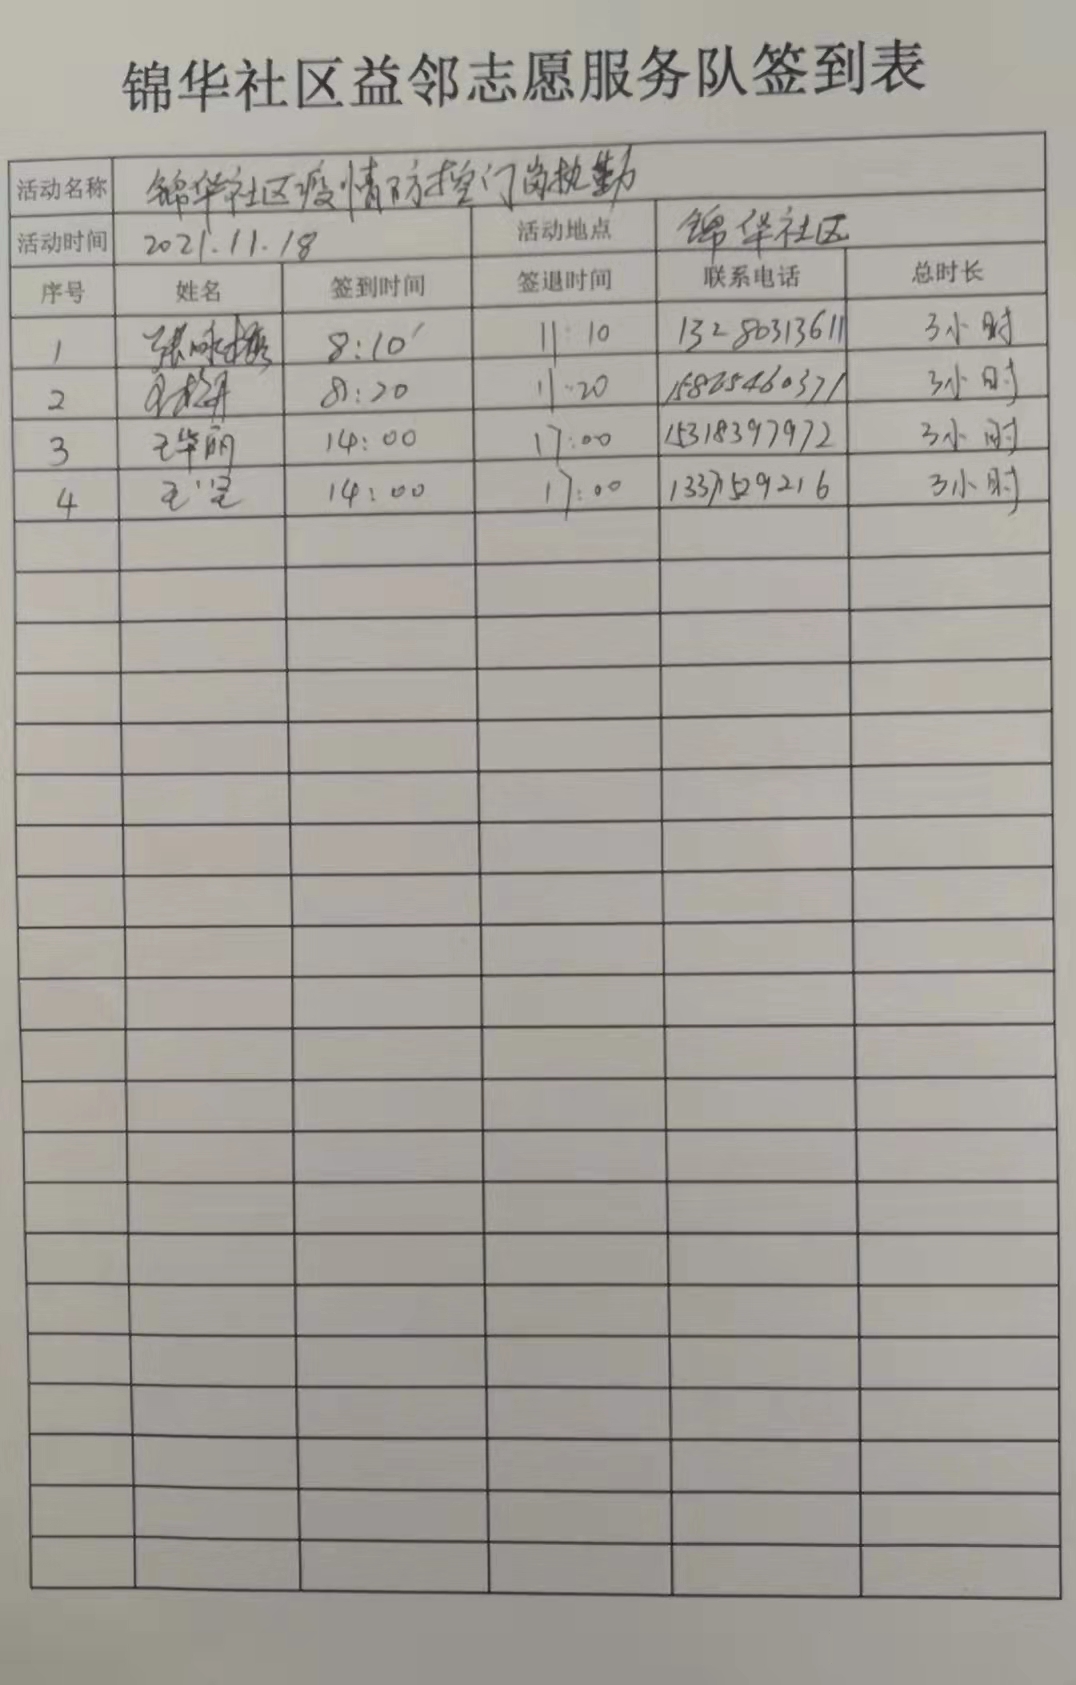 锦华社区益邻志愿服务队签到表
活动名称 锦华社区疫情防控门岗执勤
活动时间 2021.11.18 活动地点 锦华社区
序号 姓名 签到时间 签退时间 联系电话 总时长
1 8:10 11:10 13280313611 3小时
2 8:20 11:20 15825460371 3小时
3 王华丽 14:00 17:00 15318397972 3小时
4 14:00 17:00 3小时